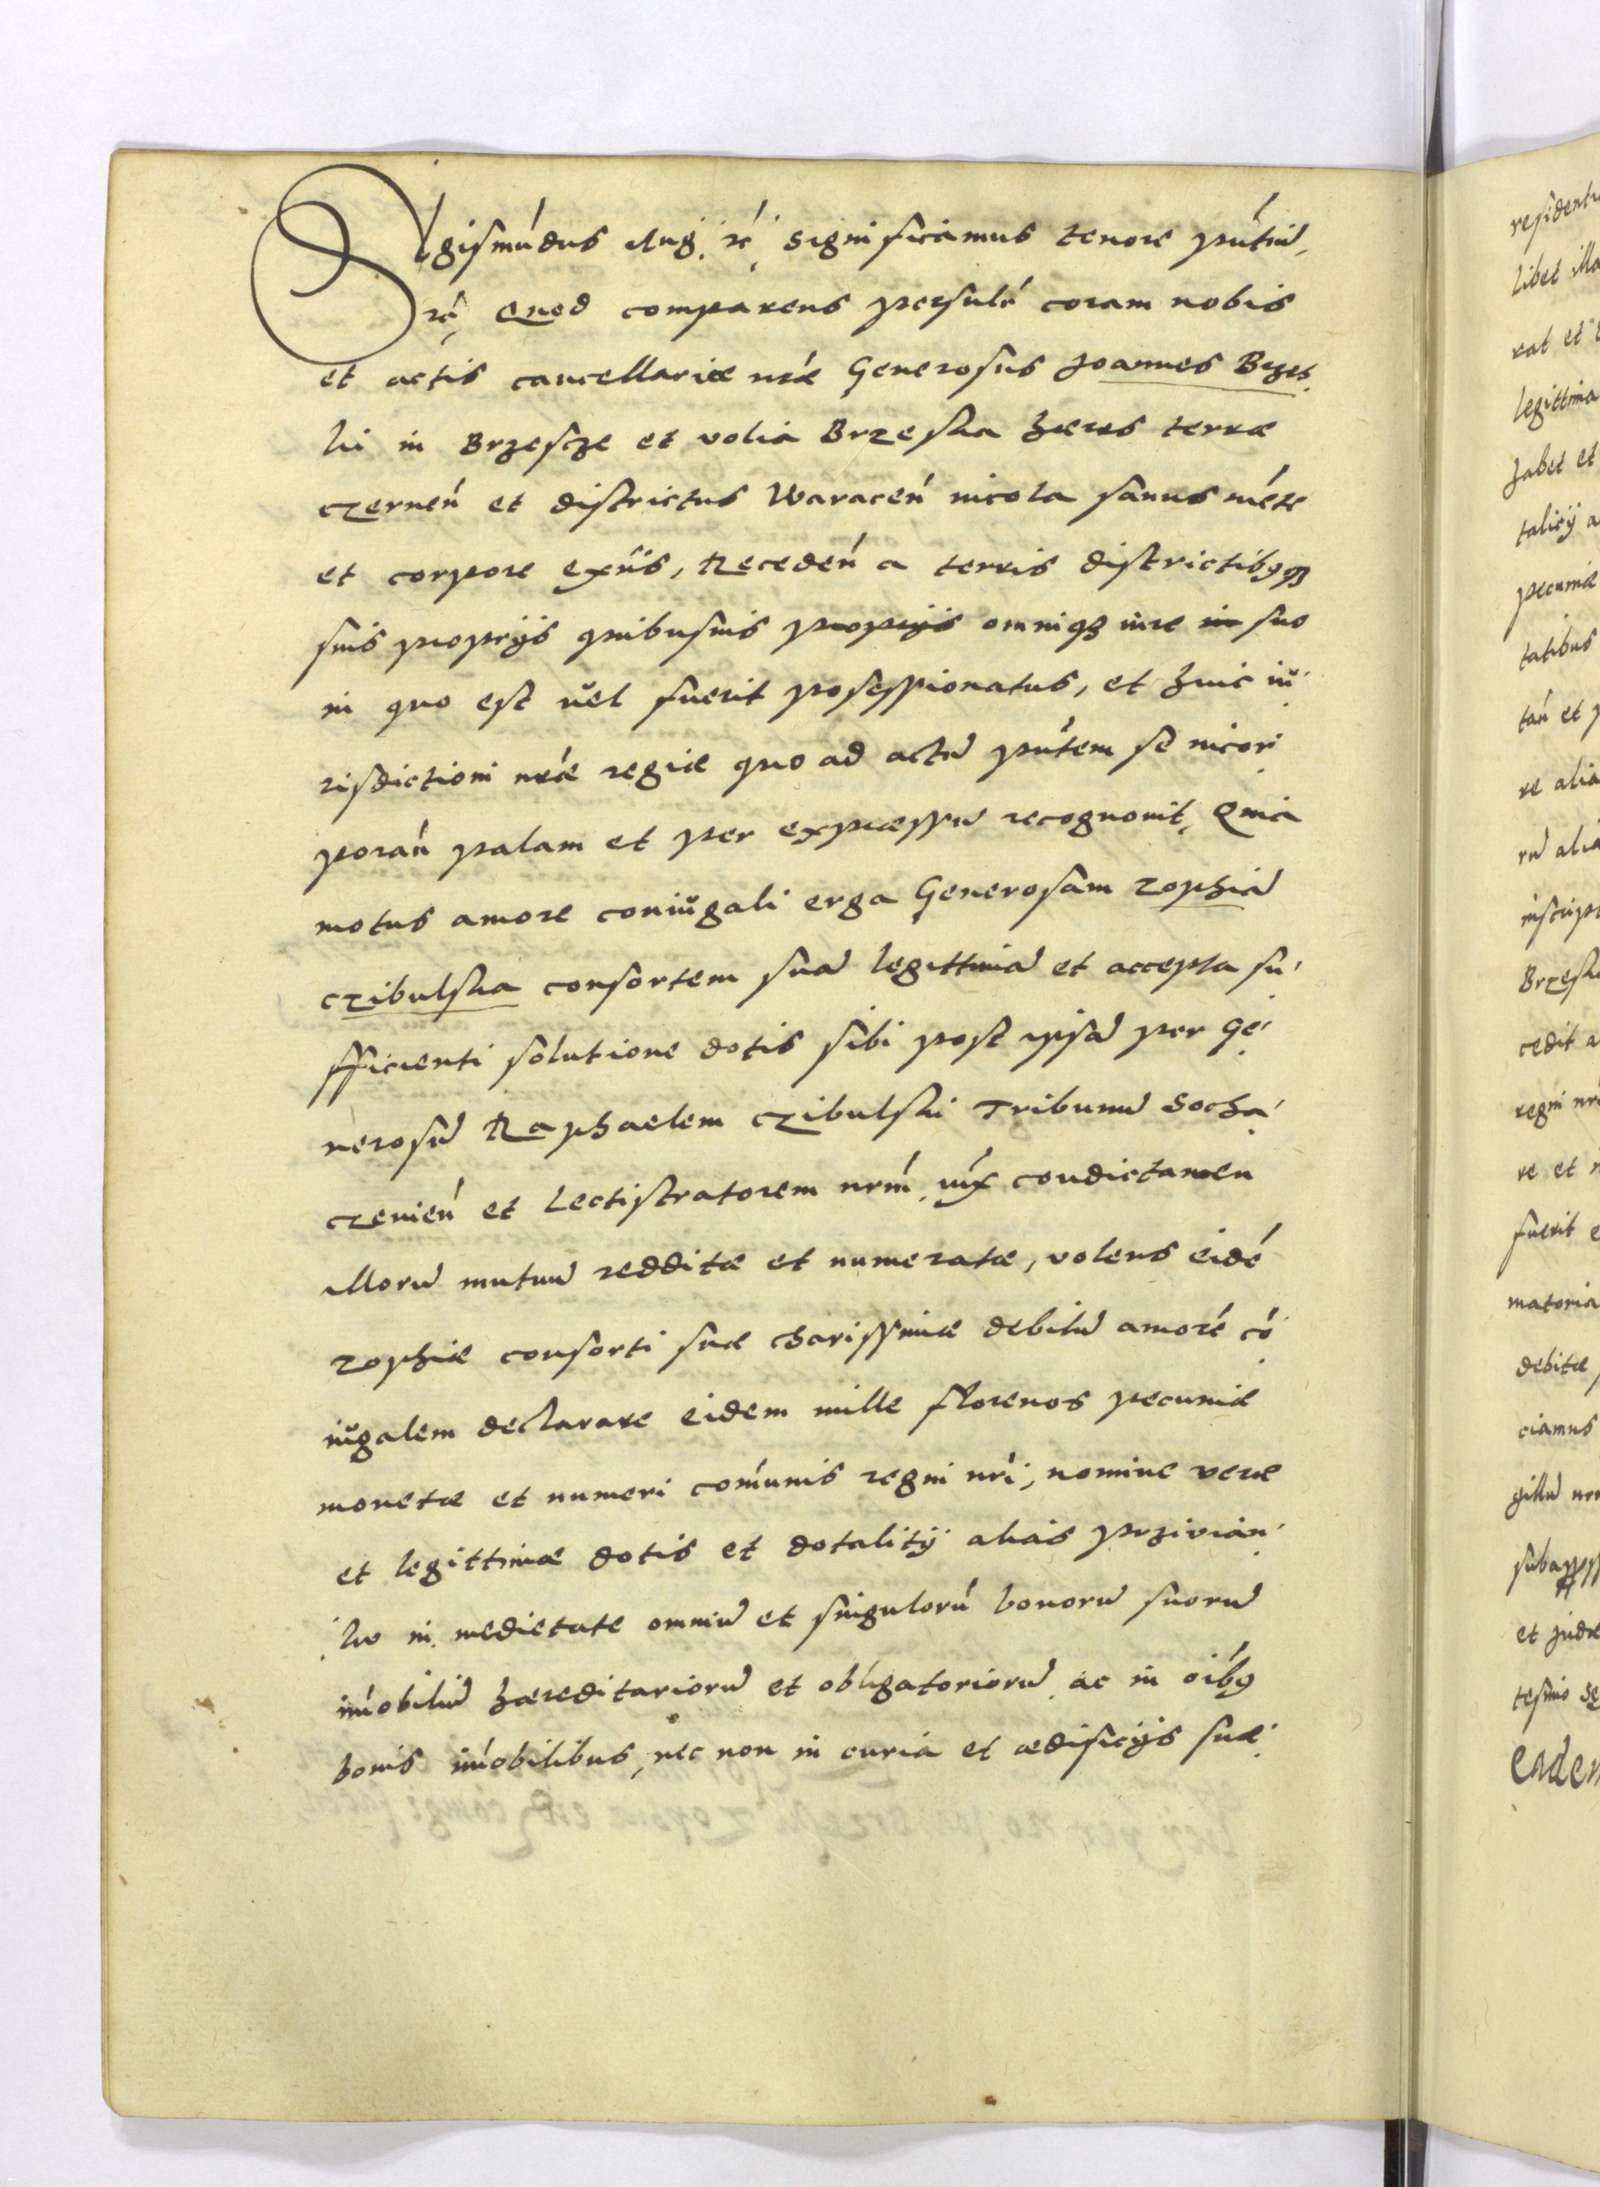 Sigismúdus Aug. rć, significamus tenore pñtiū,
rć, Quod comparens persolr coram nobis
et actis cancellariæ nræ Generosus Joannes Brzes
ki in Brzescze et volia Brzeska hæres terræ
czernen et districtus Waracen incola sanus méte
et corpore exñs, Receden a terris districtibusqз
suis proprijs quibusuis proprijs omniqз iure in suo
in quo est vel fuerit possessionatus, et huic iu
risdictioni nræ regiæ quo ad actū pñtem se incor
poran palam et per expressū recognouit, Quia
motus amore coniugali erga Generosam Zophiā
czibulska consortem suā legittimā et accepta su
fficienti solutione dotis sibi post ipsā per Ge
nerosū Raphaelem czibulski Tribunū Socha
czeuien et Lectistratorem nrm, iux condictamen
illorū mutuū redditæ et numeratæ, volens eidé
Zophiæ consorti suæ charissimæ debitū amoré có
iugalem declarare eidem mille florenos pecuniæ
monetæ et numeri comunis regni nri, nomine veræ
et legittimæ dotis et dotalitij alias przivian
ku in medietate omniū et singulorú bonorū suorū
imobiliū hæreditariorū et obligatoriorū, ac in oibus
bonis imobilibus, nec non in curia et ædificijs suæ
residenti
libet illa
rat et
legittima
habet et
talitij a
pecuniæ
tatibus
tan et p
re alia
rū alia
inscrip
Brzesk
cedit a
regni nri
re et
fuerit e
matoria
debitæ
ciamus
gillū nr
subapp
et
tesimo se
Eadem